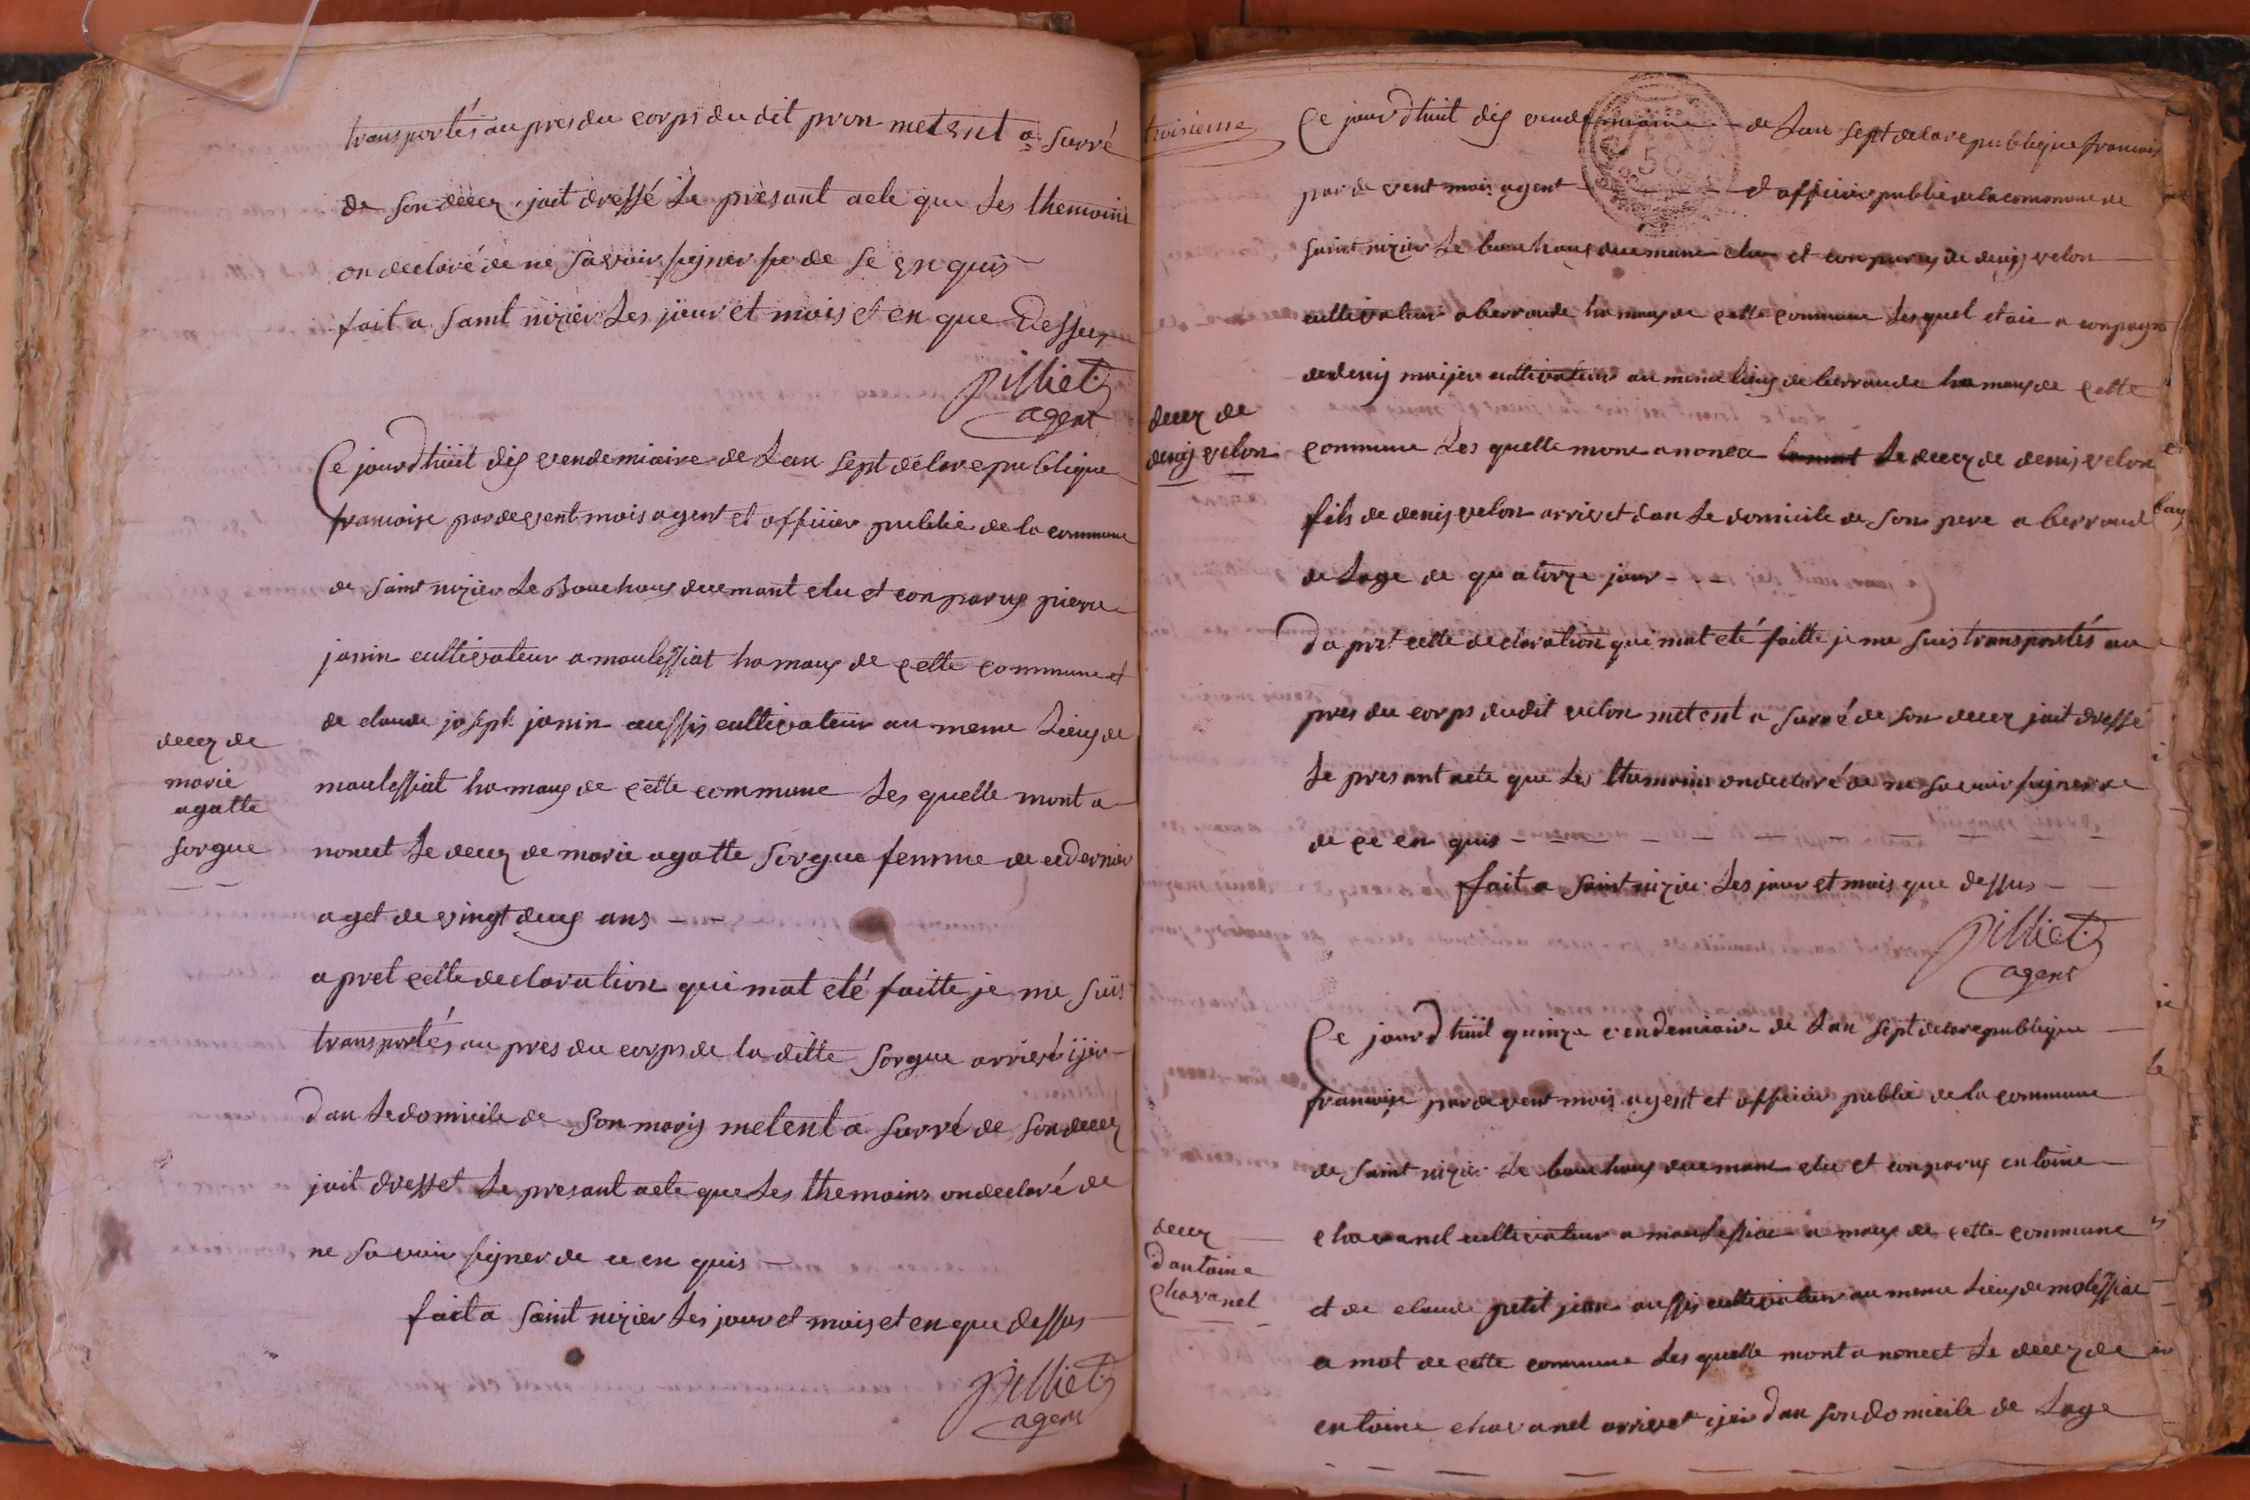 transportés au pres du corps du dit pron metent a surré
de son decez jait dressé Le présant acte que Les themoins
on declaré de ne savoir signer se de se en quis
fait a saint nizier Les jour et mois et en que Dessus
pilliet
agent
Ce jourd'huit dix vendemiaire de Lan sept de la republique
francoise par devent mois agent et officier public de la commune
de saint nizier Le Bouchoux duemant elu et conparus pierre
janin cultivateur a maulessiat hamaux de cette commune et
de claude joseph janin aussis cultivateur au meme Lieux de
maulessiat hamaux de cette commune Les quelle mont a
noncet Le decez de marie agatte sorgue femme de ce dernier
aget de vingt deux ans
decez de
marie
agatte
sorgue
apret cette declaration qui mat eté faitte je me suis
transportés au pres du corps de la ditte sorgue arrivé ijer
dan Le domicile de son maris metent a surré de son decez
jait dresset Le presant acte que Les themoins on declaré de
ne savoir signer de ce en quis
fait a saint nizier Les jour et mois et en que dessus
pilliet
agent
troisieme
50
Ce jourd'huit dix vendemiaire de Lan sept de la republique francois
par de vent mois agent et officier public de la commune de
saint nizier Le bouchoux duemant elu et conparus de denis velon
cultivateur a berroude hamaux de cette commune Lesquel etait a conpagn
de denis moijer cultivateur au meme lieux de berroude hamaux de cette
commune Les quelle mont anonca Le decez de denis velon
decez de
denis velon
fils de denis velon arrivet dan Le domicile de son pere a berroud
de Lage de quatorze jour
Da pret cette declaration qui mat eté faitte je me suis transportés au
pres du corps dudit velon metent a surré de son decez jait dressé
Le presant acte que Les themoins on declaré de ne savoir signer de
de ce en quis
fait a saint nizier Les jour et mois que dessus
pilliet
agent
Ce jourd'huit quinze vendemiaire de Lan sept de la republique
francoise par devent mois agent et officier public de la commune
de saint nizier Le bouchoux duemant elu et conparus entoine
chavanel cultivateur a maulessiat a maux de cette commune
et de claude petit jean aussis cultivateur au meme Lieux de molessiat
a mot de cette commune Les quelle mont a noncet Le decez de
entoine chavanel arrivet ijer dan son domicile de Lage
decez
dantoine
Chavanel